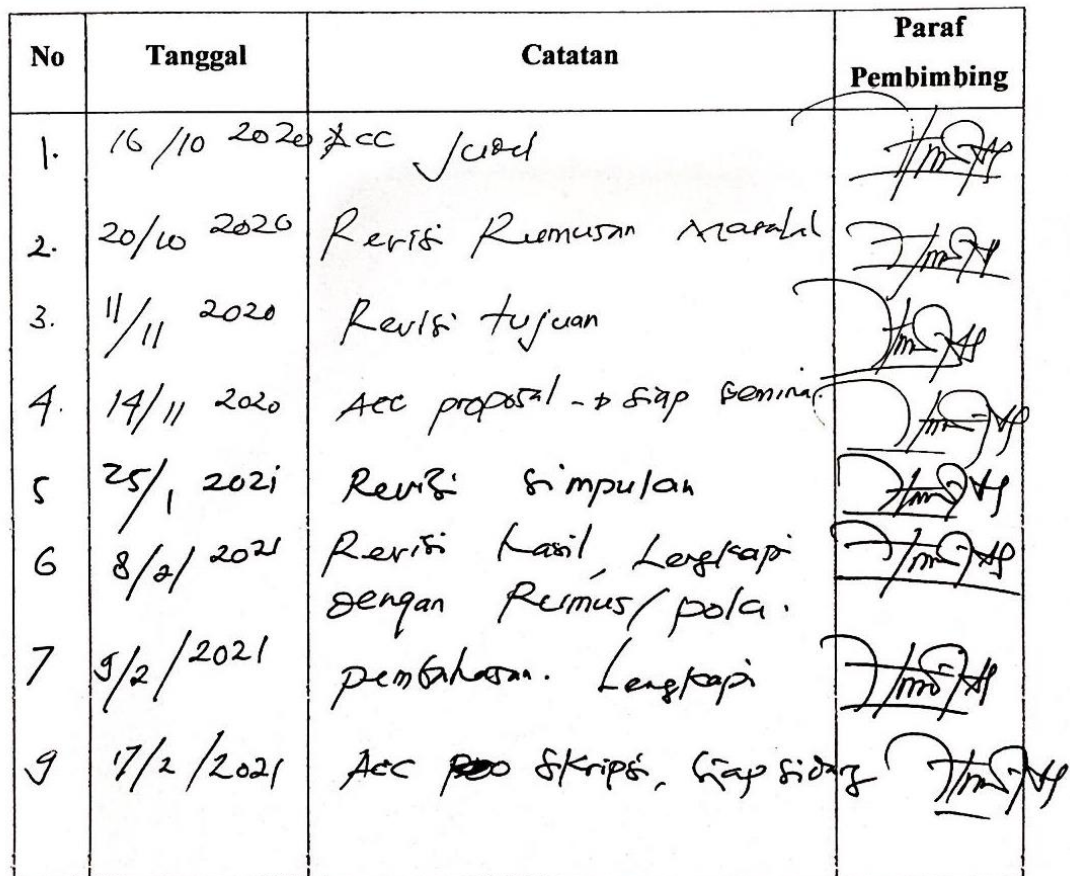 No Tanggal Catatan Paraf Pembimbing
1. 16/10 2020 Acc Judul
2. 20/10 2020 Revisi Rumusan Masalah
3. 11/11 2020 Revisi tujuan
4. 14/11 2020 Acc proposal -> siap seminar
5 25/1 2021 Revisi simpulan
6 8/2/2021 Revisi hasil, Lengkapi
dengan Rumus/pola.
7 9/2/2021 pembahasan. Lengkapi
9 17/2/2021 Acc Skripsi, siap sidang